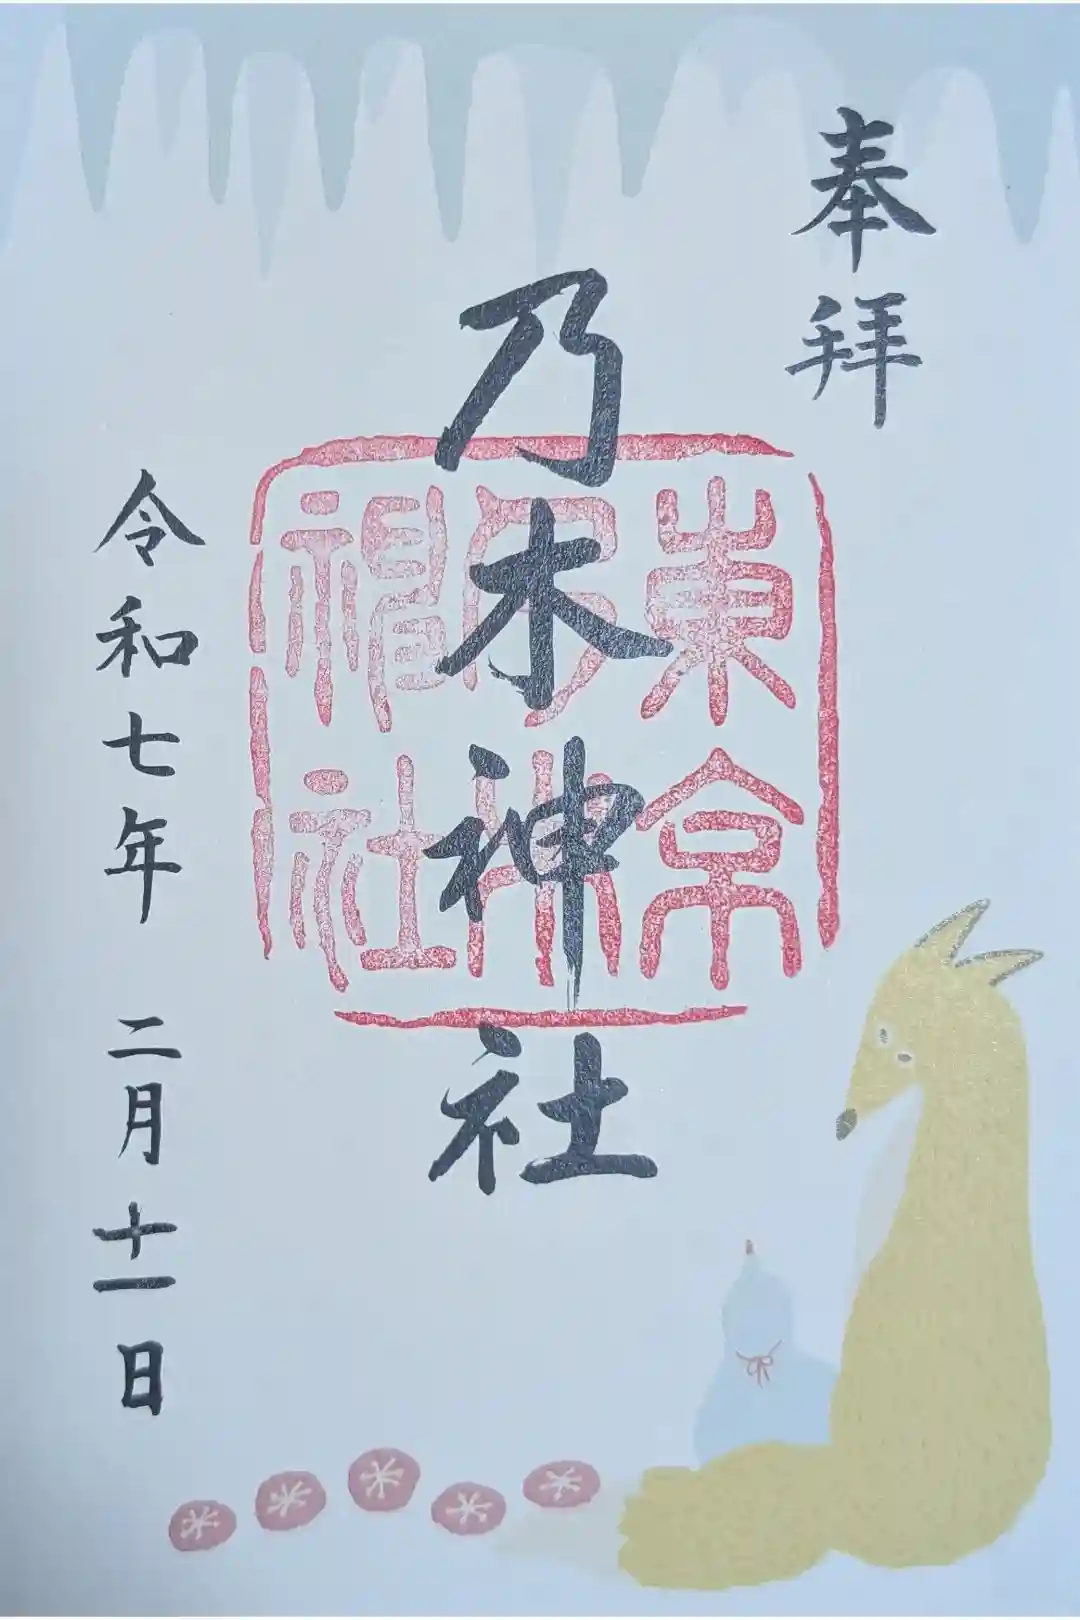 奉拝
乃木神社
東京
乃木
神社
令和七年 二月十一日